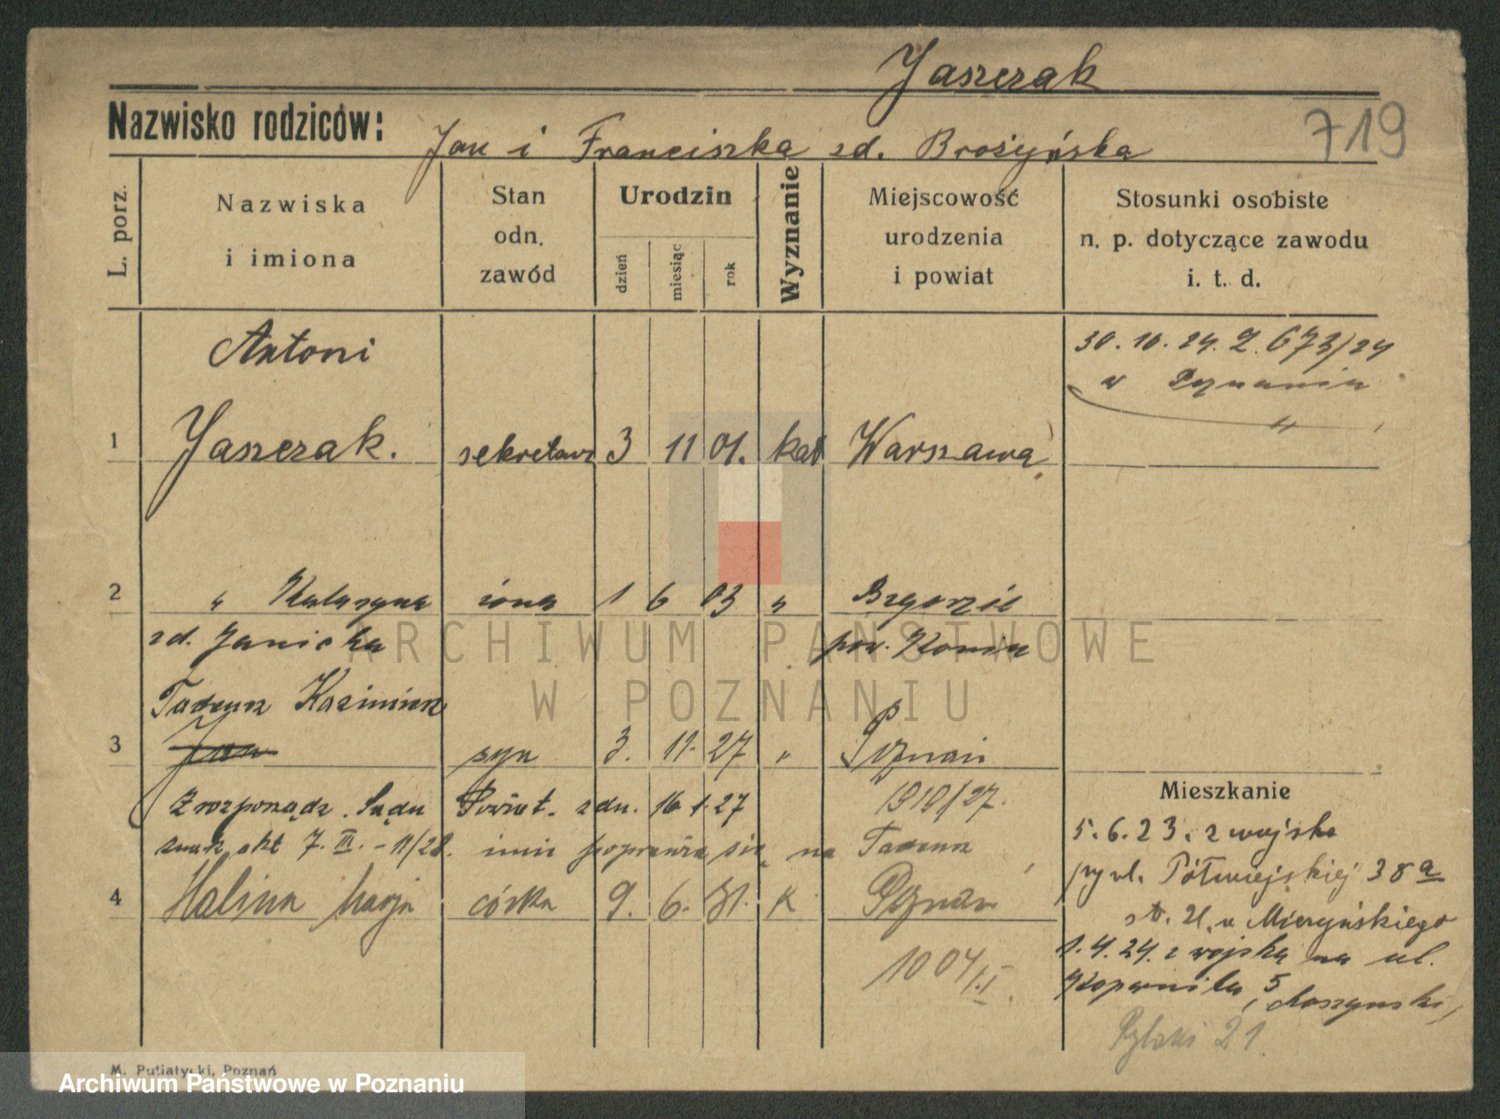 Jaszczak
Nazwisko rodziców: Jan i Franciszka zd. Brożyńska
719
L. porz.
Nazwiska i imiona
Stan odn. zawód
Urodzin
dzień
miesiąc
rok
Wyznanie
Miejscowość urodzenia i powiat
Stosunki osobiste n. p. dotyczące zawodu i. t. d.
Antoni
30. 10. 24. 2. 673/24
w Poznaniu
1 Jaszczak. sekretarz 3 11 01. kat Warszawa
2 " Katarzyna żona 1 6 03 "
zd. Janicka pow. Konin
Tadeusz Kazimierz
3 Jan syn 3. 11. 27 " Poznań
Z rozporządz. Sądu Powiat. z dn. 16 1. 27 1910/27.
znak akt 7. III. - 11/28. imię poprawia się na Tadeusz
4 Halina Marja córka 9. 6. 31. k Poznań
1004/
Mieszkanie
5. 6. 23. z wojska
przy ul. Półwiejskiej 38a
u Mierzyńskiego
1. 4. 24. z wojska na ul.
Kopernika 5,
21.
M. Putiatycki, Poznań
ARCHIWUM PAŃSTWOWE
W POZNANIU
Archiwum Państwowe w Poznaniu